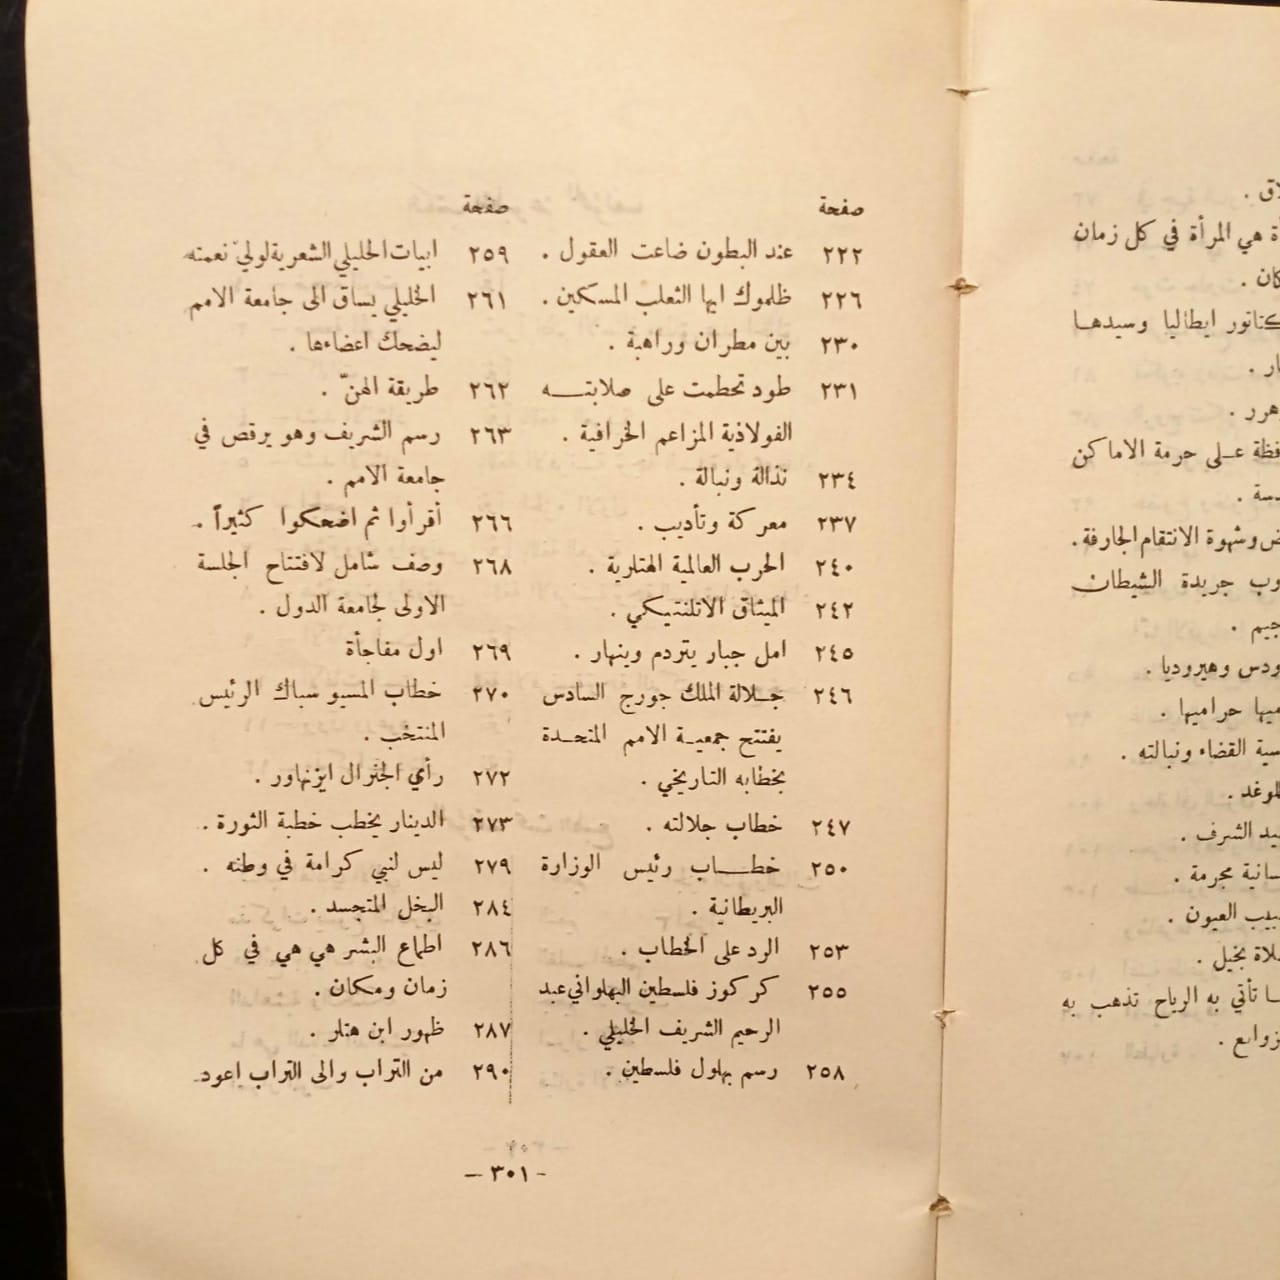 لاق .
ة هي المرأة في كل زمان
كان .
كتاتور ايطاليا وسيدهـا
ار .
هرر .
فظة عـلى حرمة الاماكن
دسة .
ض وشهوة الانتقام الجارفة .
وب جريدة الشيطان
جيم .
ودس وهيروديا .
ميها حراميها .
سية القضاء ونبالته .
لموغد .
يد الشرف .
سانية مجرمة .
بيب العيون .
لاة بخيل .
ـا تأتي به الرياح تذهب به
زوابع .
صفحة
٢٢٢ عند البطون ضاعت العقول .
٢٢٦ ظلموك ايها الثعلب المسكين .
٢٣٠ بين مطران وراهبة .
٢٣١ طود تحطمت على صلابتـــه
الفولاذية المزاعم الخرافية .
٢٣٤ نذالة ونبالة .
٢٣٧ معركة وتأديب .
٢٤٠ الحرب العالمية الهتلرية .
٢٤٢ الميثاق الاتلنتيكي .
٢٤٥ امل جبار يتردم وينهار .
٢٤٦ جـلالة الملك جورج السادس
يفتتح جمعيـة الامم المتحـدة
بخطابه التاريخي .
٢٤٧ خطاب جلالته .
٢٥٠ خطـــاب رئيس الوزارة
البريطانية .
٢٥٣ الرد على الخطاب .
٢٥٥ كركوز فلسطين البهلواني عبد
الرحيم الشريف الخليلي .
٢٥٨ رسم بهلول فلسطين .
صفحة
٢٥٩ ابيات الخليلي الشعرية لوليّ نعمته
٢٦١ الخليلي يساق الى جامعة الامم
ليضحك اعضاءها .
٢٦٢ طريقة الهنّ .
٢٦٣ رسم الشريف وهو يرقص في
جامعة الامم .
٢٦٦ أقرأوا ثم اضحكوا كثيراً .
٢٦٨ وصف شامل لافتتاح الجلسة
الاولى لجامعة الدول .
٢٦٩ اول مفاجأة
٢٧٠ خطاب المسيو سباك الرئيس
المنتخب .
٢٧٢ رأي الجنرال ايزنهاور .
٢٧٣ الدينار يخطب خطبة الثورة .
٢٧٩ ليس لنبي كرامة في وطنه .
٢٨٤ البخل المتجسد .
٢٨٦ اطماع البشر هي هي في كل
زمان ومكان .
٢٨٧ ظهور ابن هتلر .
٢٩٠ من التراب والى التراب اعود
- ٣٠١ -